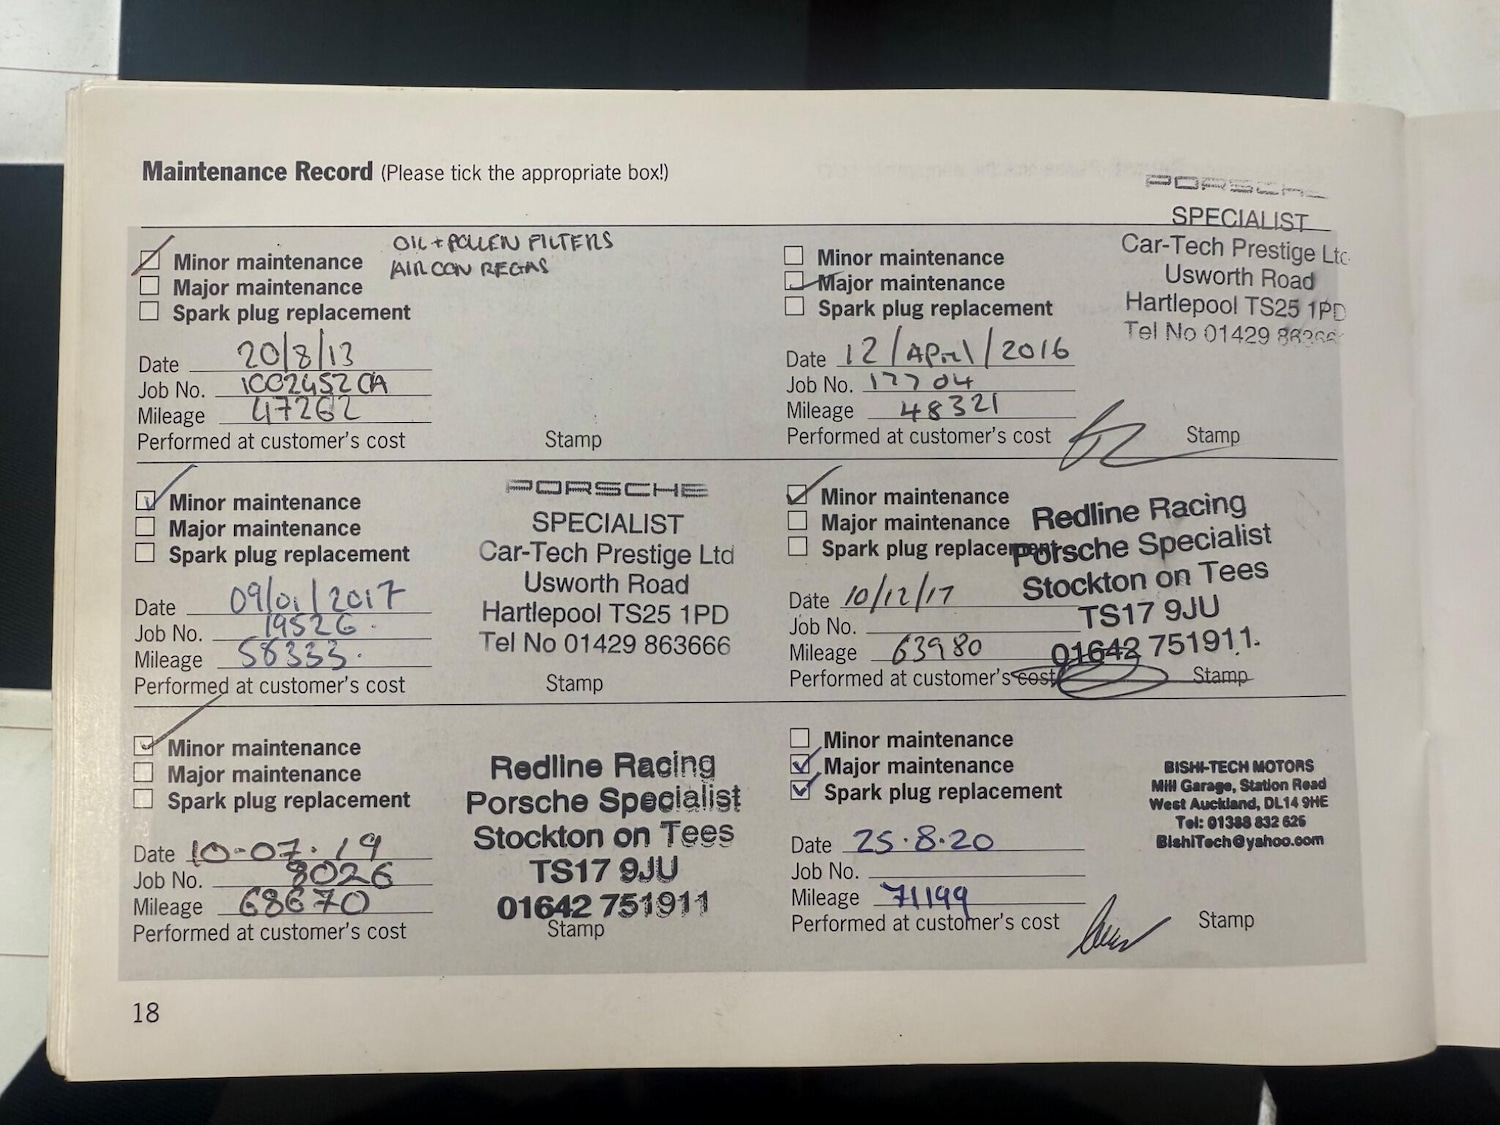 Maintenance Record (Please tick the appropriate box!)
Minor maintenance
OIL + POLLEN FILTERS
AIR CON REGAS
Major maintenance
Spark plug replacement
Date 20/8/13
Job No.
Mileage 47262
Performed at customer's cost
Stamp
Minor maintenance
Major maintenance
Spark plug replacement
Date 12/April/2016
Job No. 17704
Mileage 48321
Performed at customer's cost
Stamp
PORSCHE
SPECIALIST
Car-Tech Prestige Ltd
Usworth Road
Hartlepool TS25 1PD
Tel No 01429
Minor maintenance
Major maintenance
Spark plug replacement
Date 09/01/2017
Job No. 19526.
Mileage 58333.
Performed at customer's cost
Stamp
PORSCHE
SPECIALIST
Car-Tech Prestige Ltd
Usworth Road
Hartlepool TS25 1PD
Tel No 01429 863666
Minor maintenance
Major maintenance
Spark plug replacement
Date 10/12/17
Job No.
Mileage 63980
Performed at customer's cost
Stamp
Redline Racing
Porsche Specialist
Stockton on Tees
TS17 9JU
01642 751911.
Minor maintenance
Major maintenance
Spark plug replacement
Date 10-07-19
Job No. 8026
Mileage 68670
Performed at customer's cost
Redline Racing
Porsche Specialist
Stockton on Tees
TS17 9JU
01642 751911
Stamp
Minor maintenance
Major maintenance
Spark plug replacement
Date 25.8.20
Job No.
Mileage 71199
Performed at customer's cost
Stamp
BISHI-TECH MOTORS
Mill Garage, Station Road
West Auckland, DL14 9HE
Tel: 01388 832 626
BishiTech@yahoo.com
18